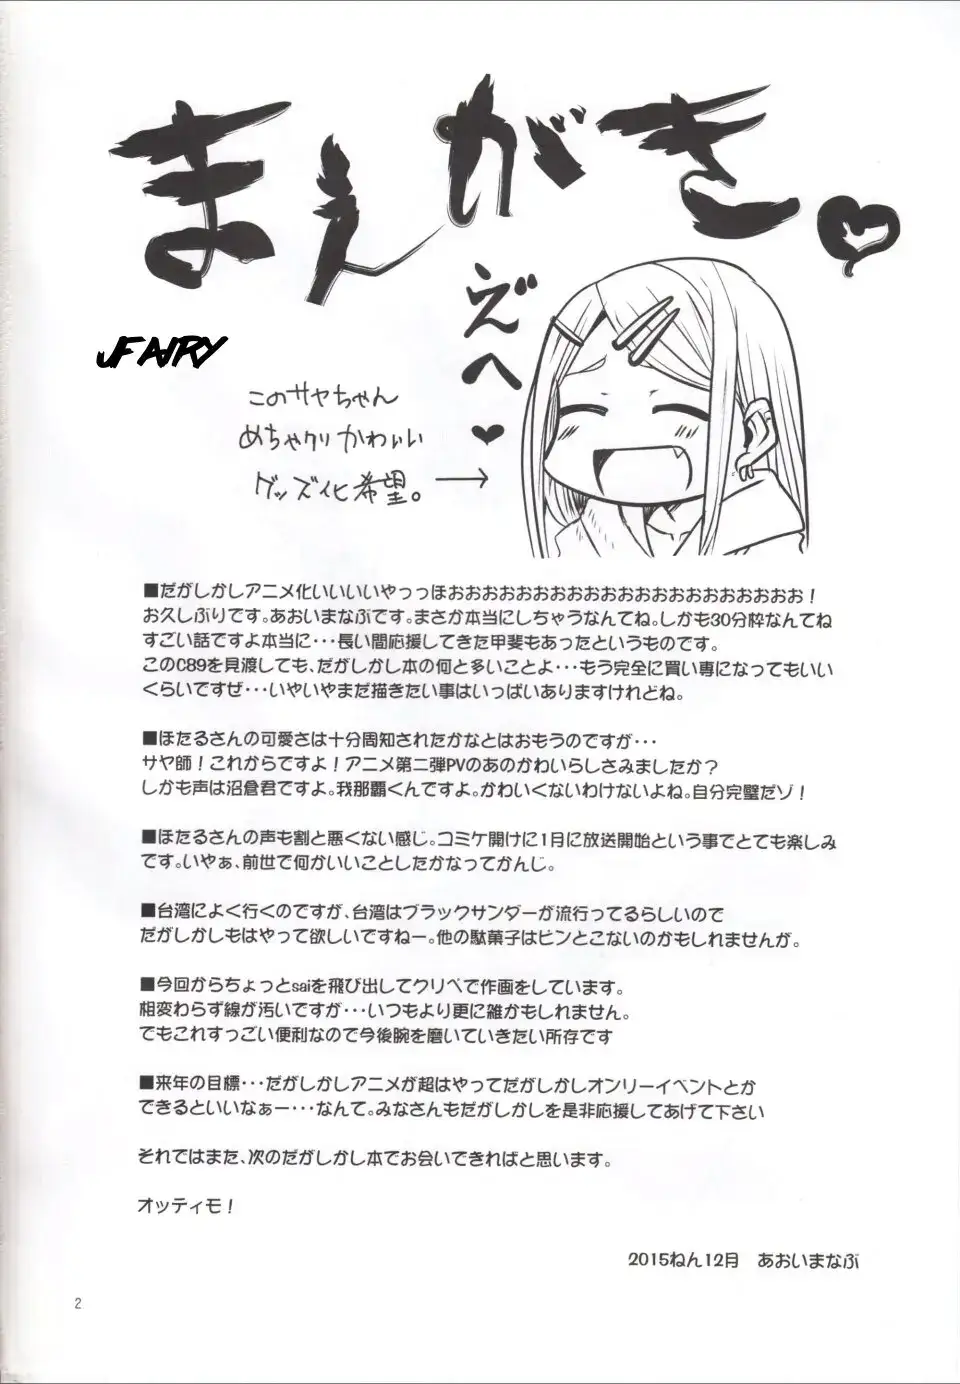 まえがき
JFAIRY
えへ"
このサヤちゃん
めちゃクリかわいい
グッズ化希望。
■だがしかしアニメ化いいいいやっっほおおおおおおおおおおおおおおおおおおおお！
お久しぶりです。あおいまなぶです。まさか本当にしちゃうなんてね。しかも30分枠なんてね
すごい話ですよ本当に･･･長い間応援してきた甲斐もあったというものです。
このC89を見渡しても、だがしかし本の何と多いことよ･･･もう完全に買い専になってもいい
くらいですぜ･･･いやいやまだ描きたい事はいっぱいありますけれどね。
■ほたるさんの可愛さは十分周知されたかなとはおもうのですが･･･
サヤ師！これからですよ！アニメ第二弾PVのあのかわいらしさみましたか？
しかも声は沼倉君ですよ。我那覇くんですよ。かわいくないわけないよね。自分完璧だゾ！
■ほたるさんの声も割と悪くない感じ。コミケ開けに1月に放送開始という事でとても楽しみ
です。いやぁ、前世で何かいいことしたかなってかんじ。
■台湾によく行くのですが、台湾はブラックサンダーが流行ってるらしいので
だがしかしもはやって欲しいですねー。他の駄菓子はピンとこないのかもしれませんが。
■今回からちょっとsaiを飛び出してクリペで作画をしています。
相変わらず線が汚いですが･･･いつもより更に雑かもしれません。
でもこれすっごい便利なので今後腕を磨いていきたい所存です
■来年の目標･･･だがしかしアニメが超はやってだがしかしオンリーイベントとか
できるといいなぁー･･･なんて。みなさんもだがしかしを是非応援してあげて下さい
それではまた、次のだがしかし本でお会いできればと思います。
オッティモ！
2015ねん12月 あおいまなぶ
2